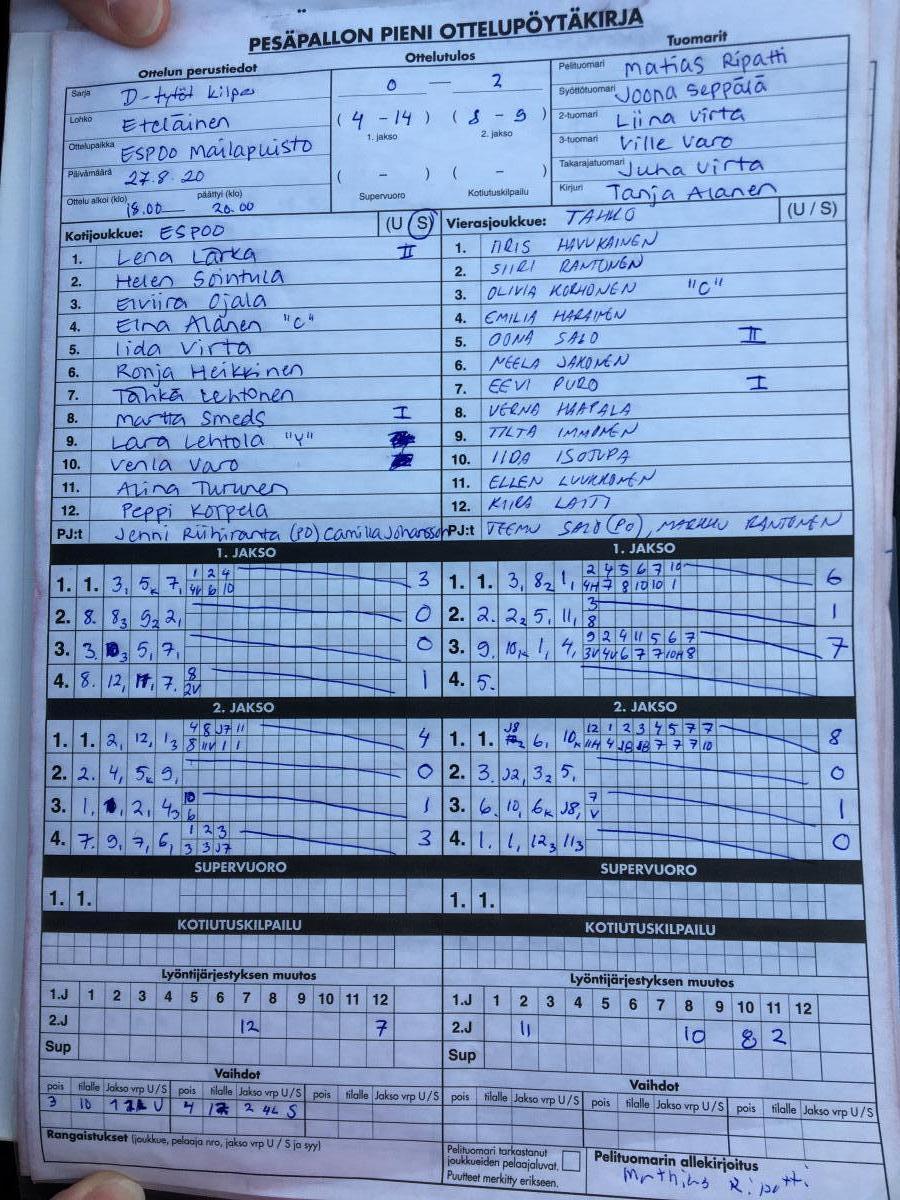 PESÄPALLON PIENI OTTELUPÖYTÄKIRJA
Ottelun perustiedot
Sarja D-tytöt kilpa
Lohko Eteläinen
Ottelupaikka ESPOO Mailapuisto
Päivämäärä 27.8.20
Ottelu alkoi (klo) päättyi (klo)
18.00 20.00
Ottelutulos
0 — 2
( 4 - 14 ) ( 8 - 9 )
1. jakso 2. jakso
( - ) ( - )
Supervuoro Kotiutuskilpailu
Tuomarit
Pelituomari Matias Ripatti
Syöttötuomari Joona Seppälä
2-tuomari Liina Virta
3-tuomari Ville Varo
Takarajatuomari Juha Virta
Kirjuri Tanja Alanen
Kotijoukkue: ESPOO (U S)
1. Lena Larka II
2. Helen Sointula
3. Elviira Ojala
4. Elna Alanen "C"
5. Iida Virta
6. Ronja Heikkinen
7. Tähkä Lehtonen
8. Martta Smeds I
9. Lara Lehtola "V"
10. Venla Varo
11. Alina Turunen
12. Peppi Korpela
PJ:t Jenni Riihiranta (PO) Camilla Johansson
Vierasjoukkue: TAHKO (U / S)
1. IIRIS HAVUKAINEN
2. SIIRI RANTONEN
3. OLIVIA KORHONEN "C"
4. EMILIA HARAINEN
5. OONA SALO II
6. NEELA JAKONEN
7. EEVI PURO I
8. VERNA HAAPALA
9. TILTA IMMONEN
10. IIDA ISOTUPA
11. ELLEN LUUKKONEN
12. KIIRA LATTI
PJ:t TEEMU SALO (PO), MARKKU RANTONEN
1. JAKSO
1. 1. 3, 5k 7, 1 2 4 3
4V 6 10
2. 8. 83 92 2, 0
3. 3. 5, 7, 0
4. 8. 12, 7. 8 1
2V
1. JAKSO
1. 1. 3, 82 1, 2 4 5 6 7 10 6
4H 7 8 10 10 1
2. 2. 22 5, 11, 3 1
8
3. 9. 10k 1, 4, 9 2 4 11 5 6 7 7
3V 4V 6 7 7 10H 8
4. 5.
2. JAKSO
1. 1. 2, 12, 13 4 8 J7 11 4
8 11V 1 1
2. 2. 4, 5k 9, 0
3. 1, 2, 43 10 1
6
4. 7. 9, 7, 6, 1 2 3 3
3 3 J7
2. JAKSO
1. 1. J8 6, 10k 12 1 2 3 4 5 7 7 8
11H 4 J8 J8 7 7 7 10
2. 3. J2, 32 5, 0
3. 6. 10, 6k J8, 7 1
V
4. 1. 1, 123 113 0
SUPERVUORO
1. 1.
SUPERVUORO
1. 1.
KOTIUTUSKILPAILU
KOTIUTUSKILPAILU
Lyöntijärjestyksen muutos
1.J 1 2 3 4 5 6 7 8 9 10 11 12
2.J 12 7
Sup
Lyöntijärjestyksen muutos
1.J 1 2 3 4 5 6 7 8 9 10 11 12
2.J 11 10 8 2
Sup
Vaihdot
pois tilalle Jakso vrp U/S pois tilalle Jakso vrp U/S pois tilalle Jakso vrp U/S
3 10 1 U 4 2 4L S
Vaihdot
pois tilalle Jakso vrp U/S pois tilalle Jakso vrp U/S pois tilalle Jakso vrp U/S
Rangaistukset (joukkue, pelaaja nro, jakso vrp U / S ja syy)
Pelituomari tarkastanut
joukkueiden pelaajaluvat.
Puutteet merkitty erikseen.
Pelituomarin allekirjoitus